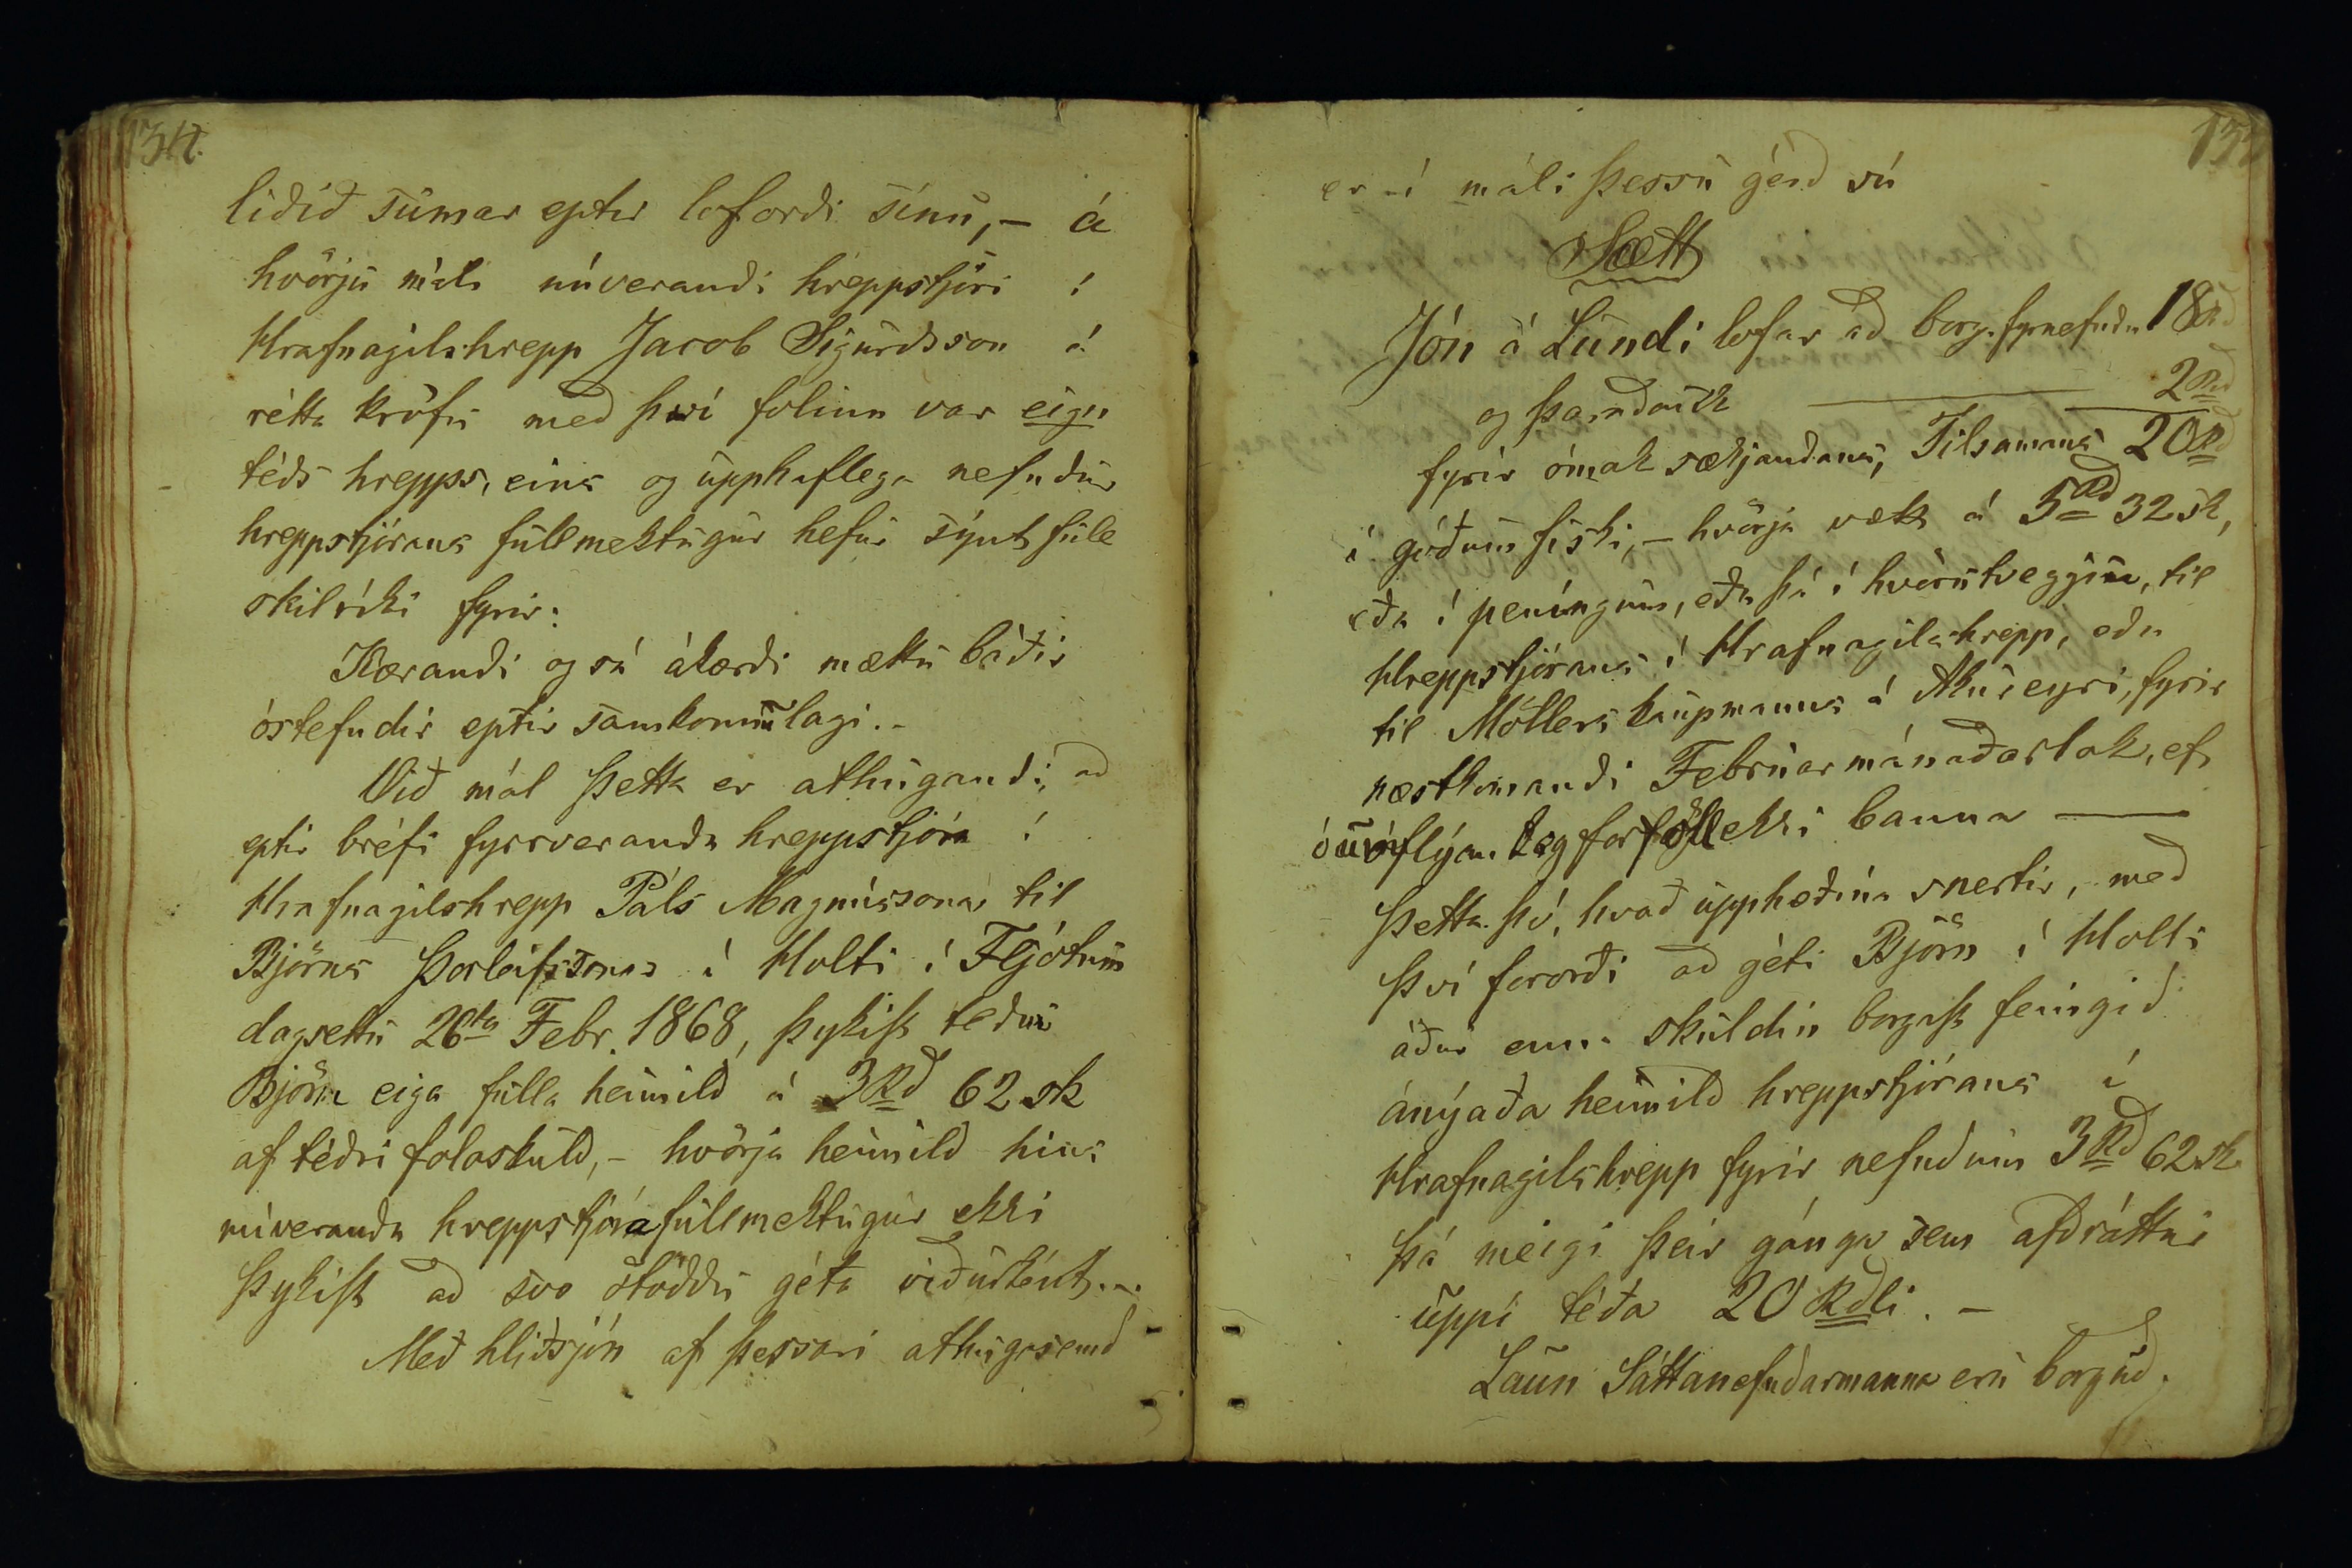 134.
liðið sumar eptir loforði sínu, – á
hvörju máli núverandi hreppstjóri í
Hrafnagilshrepp Jacob Sigurdsson á
rétta kröfu með því folinn var eign
téðs hrepps, eins og upphaflega nefndur
hreppstjórans fullmektugur hefur sýnt full
skilríki fyrir:
Kærandi og sá ákærði mættu báðir
óstefndir eptir samkomulagi. –
Við mál þetta er athugandi, að
eptir bréfi fyrrveranda hreppstjóra í
Hrafnagilshrepp Páls Magnússonar til
Björns Þorleifssonar í Holti í Fljótum
dagsettu 26ta Febr. 1868, þykist teður
Björn eiga fulla heimild á 3Rd 62 sk
af téðri folaskuld, – hvörja heimild hins
núveranda hreppstjóra fullmektugur ekki
þykist að svo stöddu géta viðurként. –
Með hliðsjón af þessari athugasemd
er í máli þessu gérð sú
Sætt
Jón á Lundi lofar að borga fyrnefnda 18Rd
og þarað auk — 2Rd
fyrir ómak sækjandans, Tilsamans 20Rd
í góðum fiski, – hvörja vætt á 5Rd 32 sk,
eða í peníngum, eða þá í hvörutveggju, til
Hreppstjórans í Hrafnagilshrepp, eða
til Möllers kaupmanns á Akureyri, fyrir
næstkomandi Februarmánaðarlok, ef
óumflýanleg forföll ekki banna —
Þetta þó, hvað upphæðina snertir, með
því fororði að géti Björn í Holti
áður enn skuldin borgast feingið
ánýaða heimild hreppstjórans í
Hrafnagilshrepp fyrir nefndum 3Rd 62 sk
þá meigi þeir gánga sem afdráttur
uppí téða 20 Rdli. –
Laun Sáttanefndarmanna eru borguð.